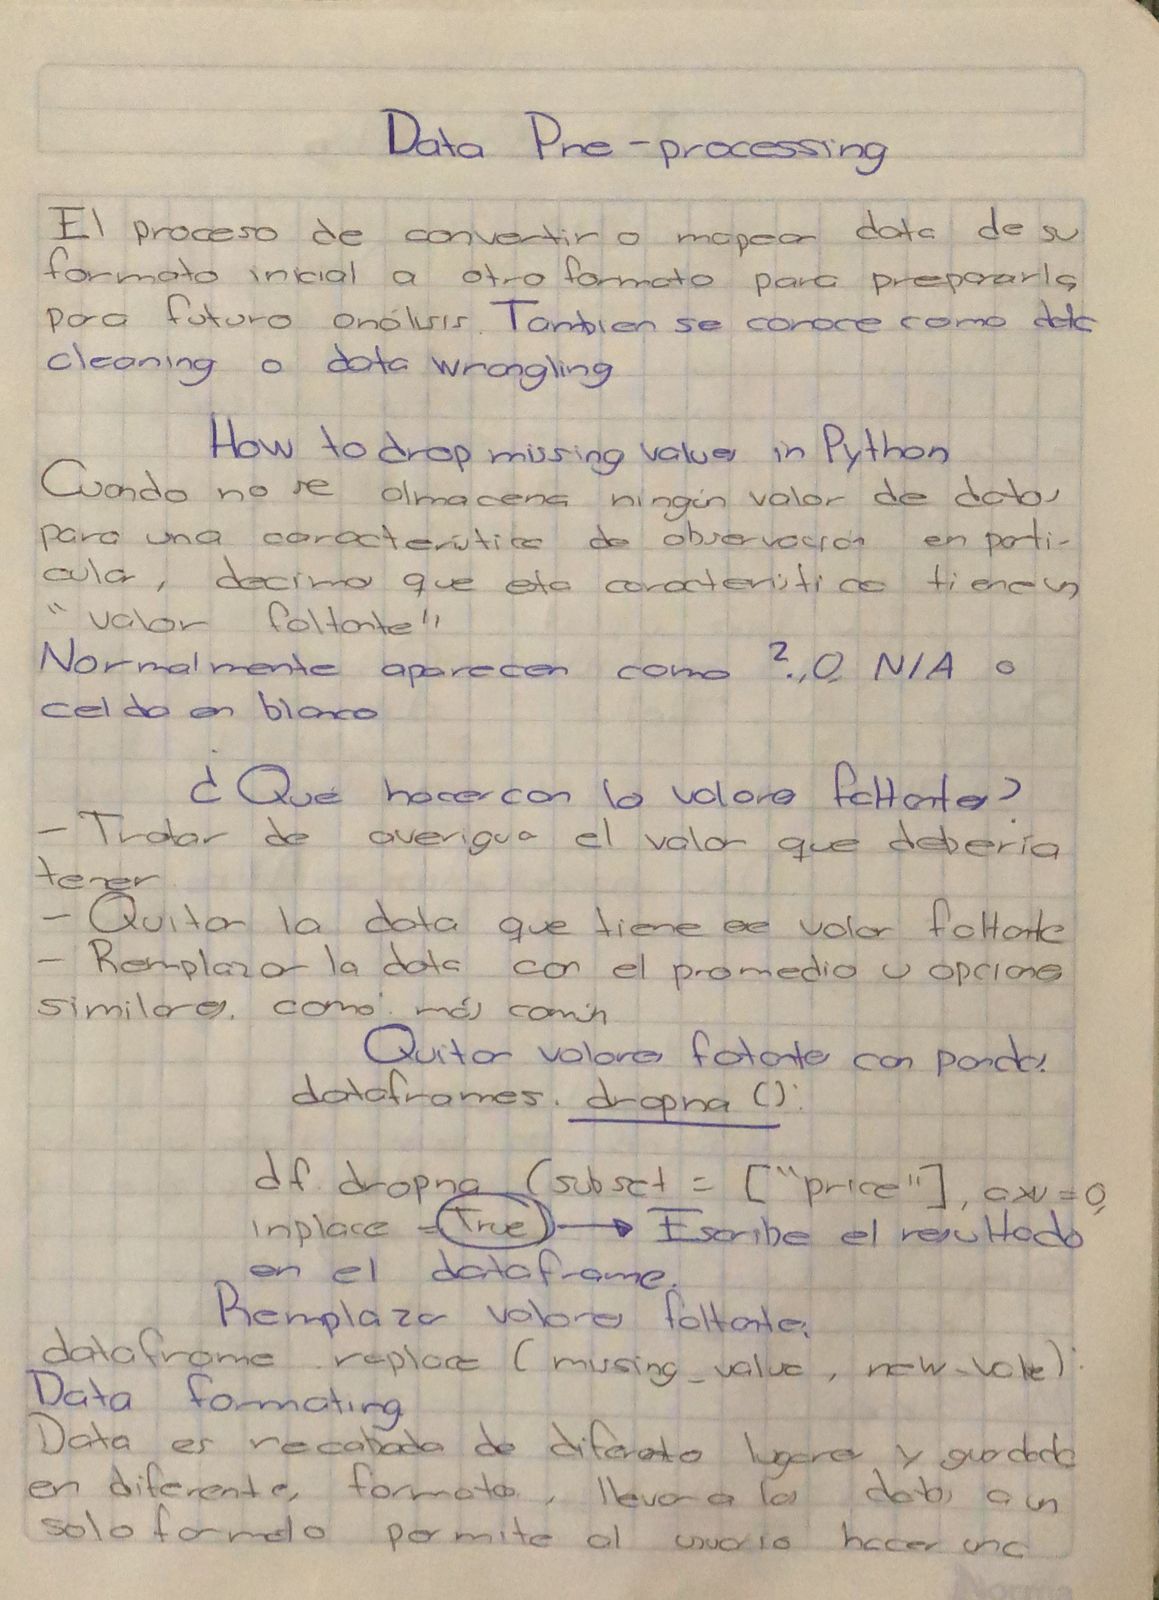 Data Pre-processing
El proceso de convertir o mapear data de su
formato inicial a otro formato para prepararla
para futuro análisis. Tambien se conoce como data
cleaning o data wrangling
How to drop missing values in Python
Cuando no se almacena ningún valor de datos
para una característica de observación en parti-
cular, decimos que esta característica tiene un
"valor faltante"
Normalmente aparecen como ?, 0, N/A o
celda en blanco
¿Qué hacer con los valores faltantes?
- Tratar de averiguar el valor que debería
tener
- Quitar la data que tiene ese valor faltante
- Remplazar la data con el promedio u opciones
similares, como: más común
Quitar valores fatantes con pandas:
dataframes.dropna():
df.dropna (subset = ["price"], axis=0,
inplace = True) → Escribe el resultado
en el dataframe.
Remplazar valores faltantes:
dataframe.replace (missing_value, new_value):
Data formating
Data es recabada de diferentes lugares y guardada
en diferentes formatos, llevar a los datos a un
solo formato permite al usuario hacer una
Norma